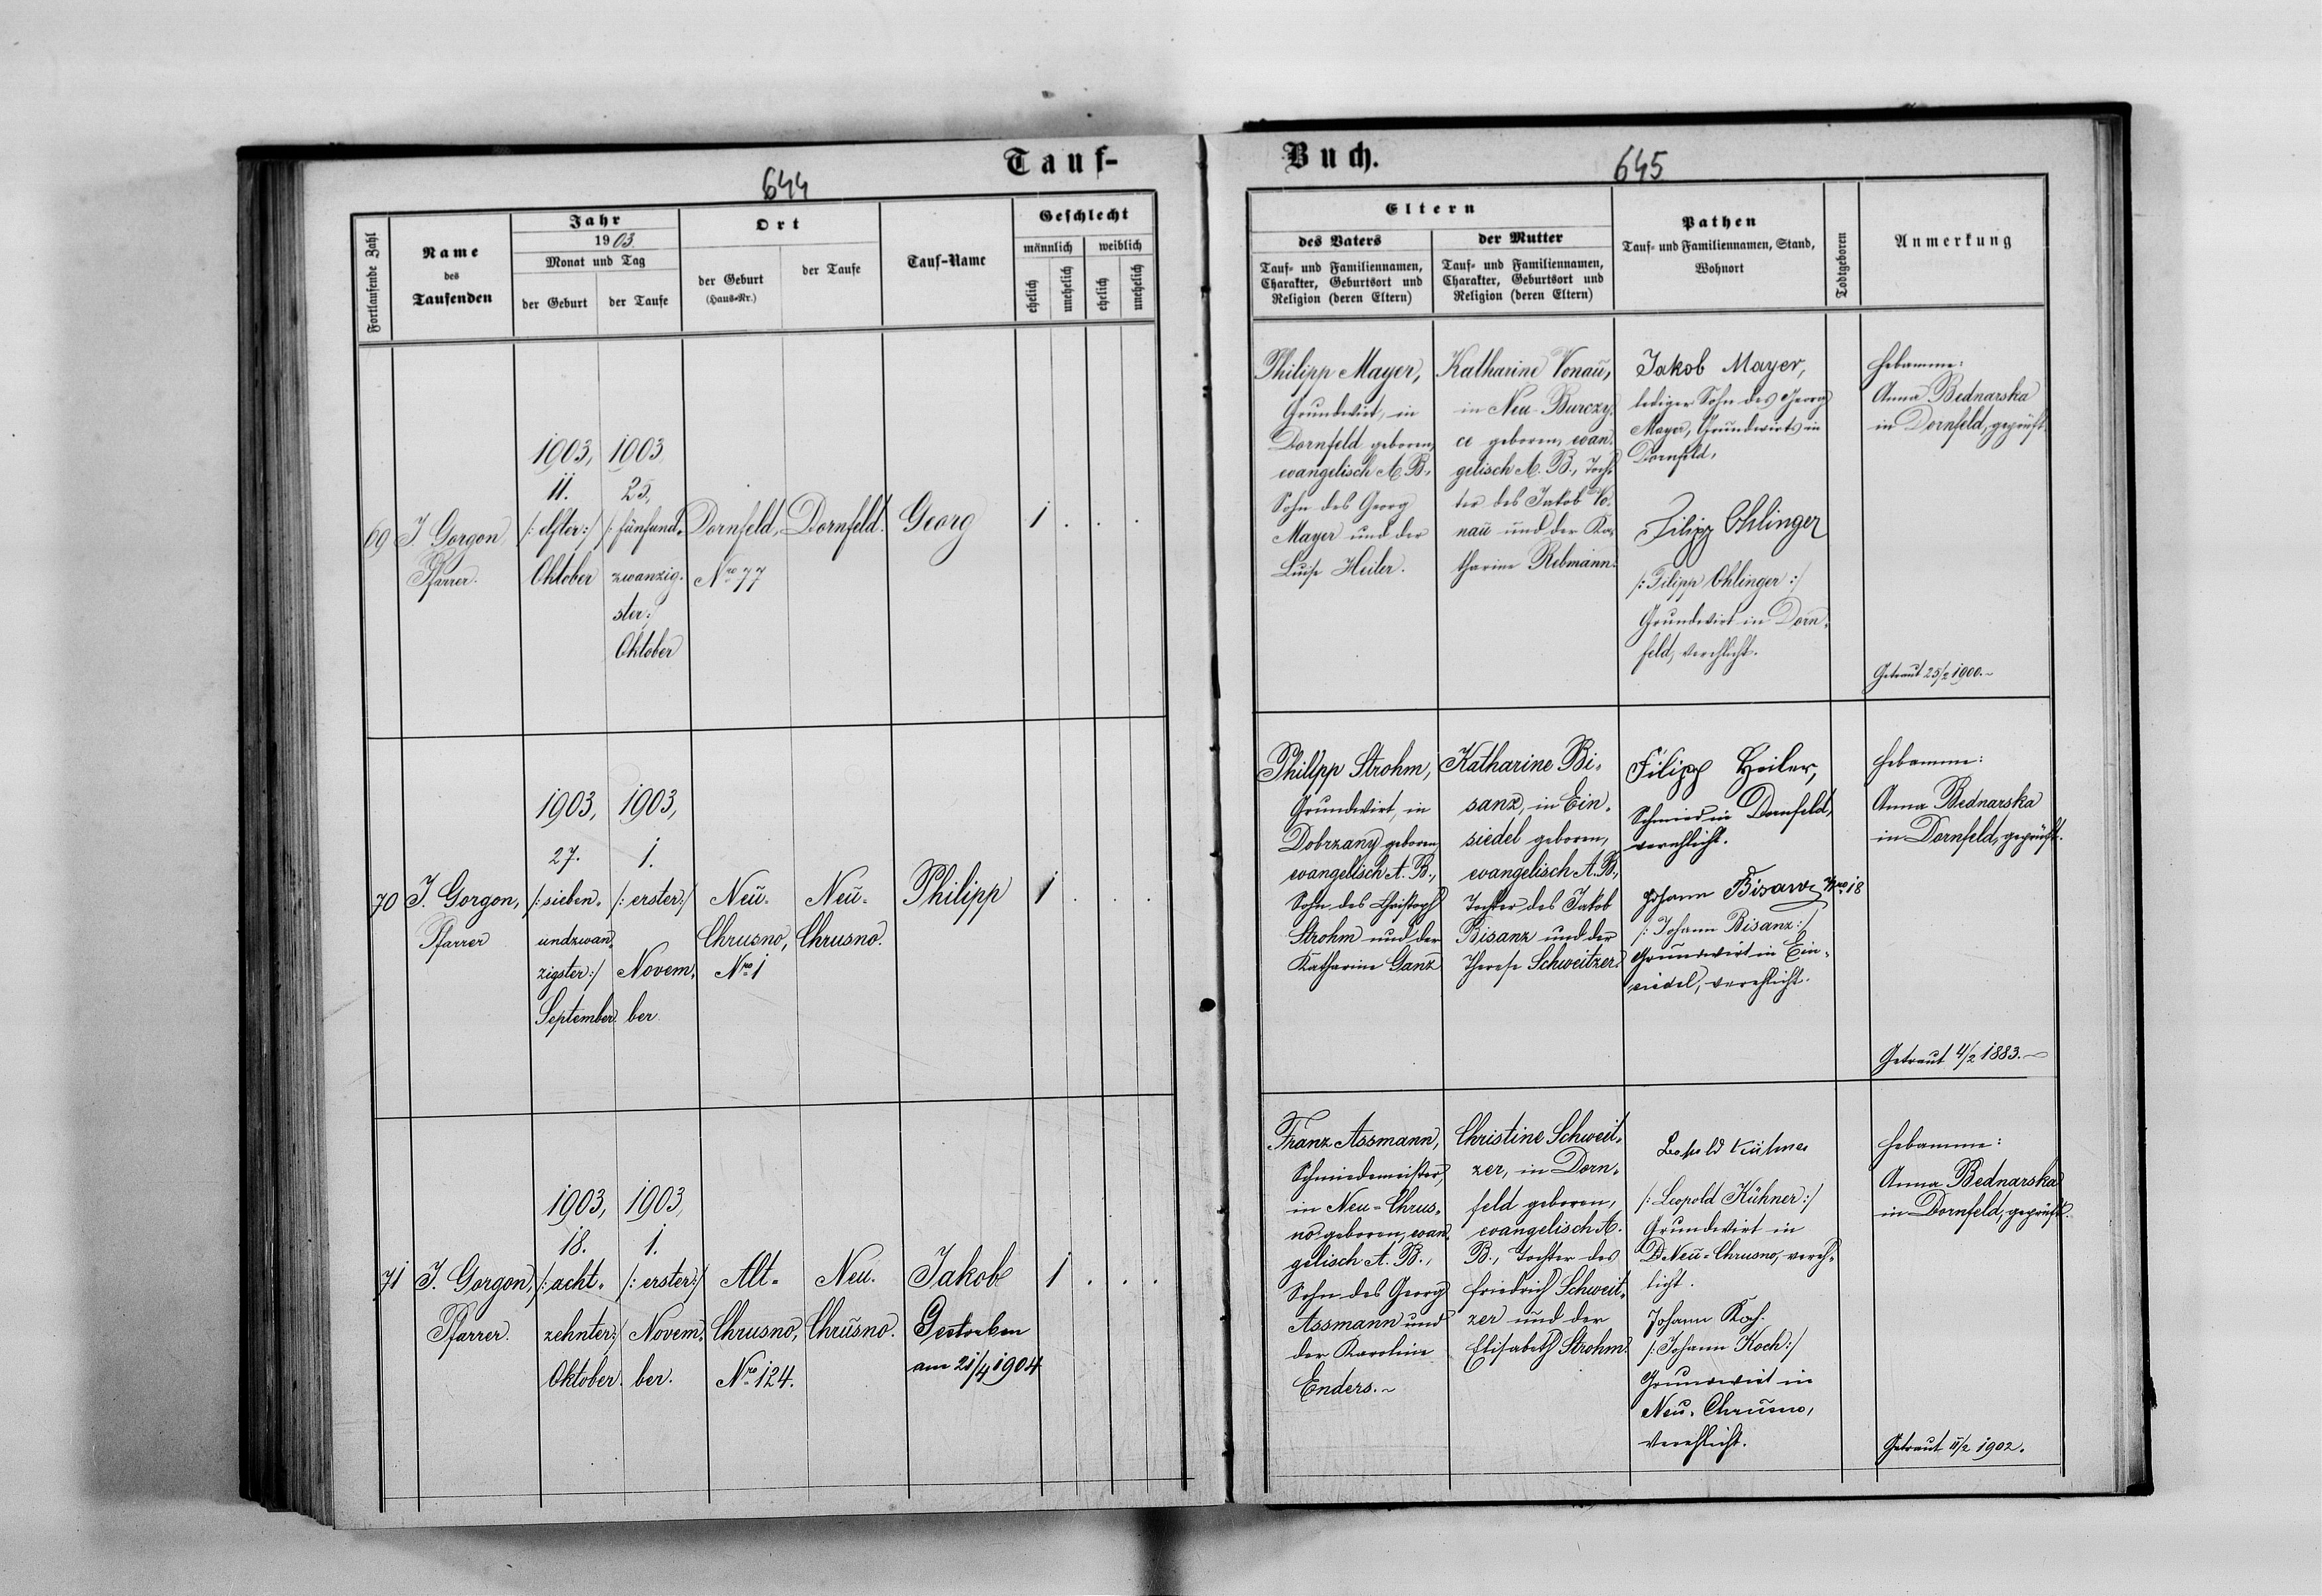 Tauf-
644
Fortlaufende Zahl
Name
des
Taufenden
Jahr
1903.
Monat und Tag
der Geburt
der Taufe
Ort
der Geburt
(Haus-Nr.)
der Taufe
Tauf-Name
Geschlecht
männlich
weiblich
ehelich
unehelich
ehelich
unehelich
69
J. Gorgon
Pfarrer.
1903,
11.
/: elfter :/
Oktober
1903
25.
/: fünfund-
zwanzig-
ster :/
Oktober
Dornfeld,
Nro 77
Dornfeld.
Georg
1 . . .
70
J. Gorgon,
Pfarrer
1903,
27.
/: sieben-
undzwan-
zigster :/
September.
1903,
1.
/: erster :/
Novem-
ber
Neu-
Chrusno,
Nro 1
Neu-
Chrusno.
Philipp
1 . . .
71
J. Gorgon,
Pfarrer.
1903,
18.
/: acht-
zehnter :/
Oktober.
1903,
1.
/: erster :/
Novem-
ber.
Alt-
Chrusno,
Nro 124.
Neu-
Chrusno.
Jakob
Gestorben
am 21/4 1904
1 . . .
Buch.
645
Eltern
des Vaters
Tauf- und Familiennamen,
Charakter, Geburtsort und
Religion (deren Eltern)
der Mutter
Tauf- und Familiennamen,
Charakter, Geburtsort und
Religion (deren Eltern)
Pathen
Tauf- und Familiennamen, Stand,
Wohnort
Todtgeboren
Anmerkung
Philipp Mayer,
Grundwirt, in
Dornfeld geboren,
evangelisch A. B.,
Sohn des Georg
Mayer und der
Luise Heiler.
Katharine Vonau,
in Neu-Burczy-
ce geboren, evan-
gelisch A. B., Toch-
ter des Jakob Vo-
nau und der Ka-
tharine Rebmann.
Jakob Mayer,
lediger Sohn des Georg
Mayer, Grundwirts in
Dornfeld,
Filipp Ohlinger
/: Filipp Ohlinger :/
Grundwirt in Dorn-
feld, verehlicht.
Hebamme:
Anna Bednarska
in Dornfeld, geprüft.
Getraut 25/2 1900.~
Philipp Strohm,
Grundwirt, in
Dobrzany geboren
evangelisch A. B.,
Sohn des Christoph
Strohm und der
Katharine Ganz
Katharine Bi-
sanz, in Ein-
siedel geboren,
evangelisch A. B.,
Tochter des Jakob
Bisanz und der
Therese Schweitzer.
Filipp Heiler,
Schmied in Dornfeld,
verehlicht.
Johann Bisanz Nro 18
/: Johann Bisanz :/
Grundwirt in Ein-
siedel, verehlicht.
Hebamme:
Anna Bednarska
in Dornfeld, geprüft.
Getraut 4/2 1883.~
Franz Assmann,
Schmiedemeister,
in Neu-Chrus-
no geboren, evan-
gelisch A. B.,
Sohn des Georg
Assmann und
der Karoline
Enders.~
Christine Schweit-
zer, in Dorn-
feld geboren,
evangelisch A.
B., Tochter des
Friedrich Schweit-
zer und der
Elisabeth Strohm.
Leopold Kühner
/: Leopold Kühner :/
Grundwirt in
Neu-Chrusno, vereh-
licht.
Johann Koch.
/: Johann Koch :/
Grundwirt in
Neu-Chrusno,
verehlicht.
Hebamme:
Anna Bednarska
in Dornfeld, geprüft.
Getraut 11/2 1902.